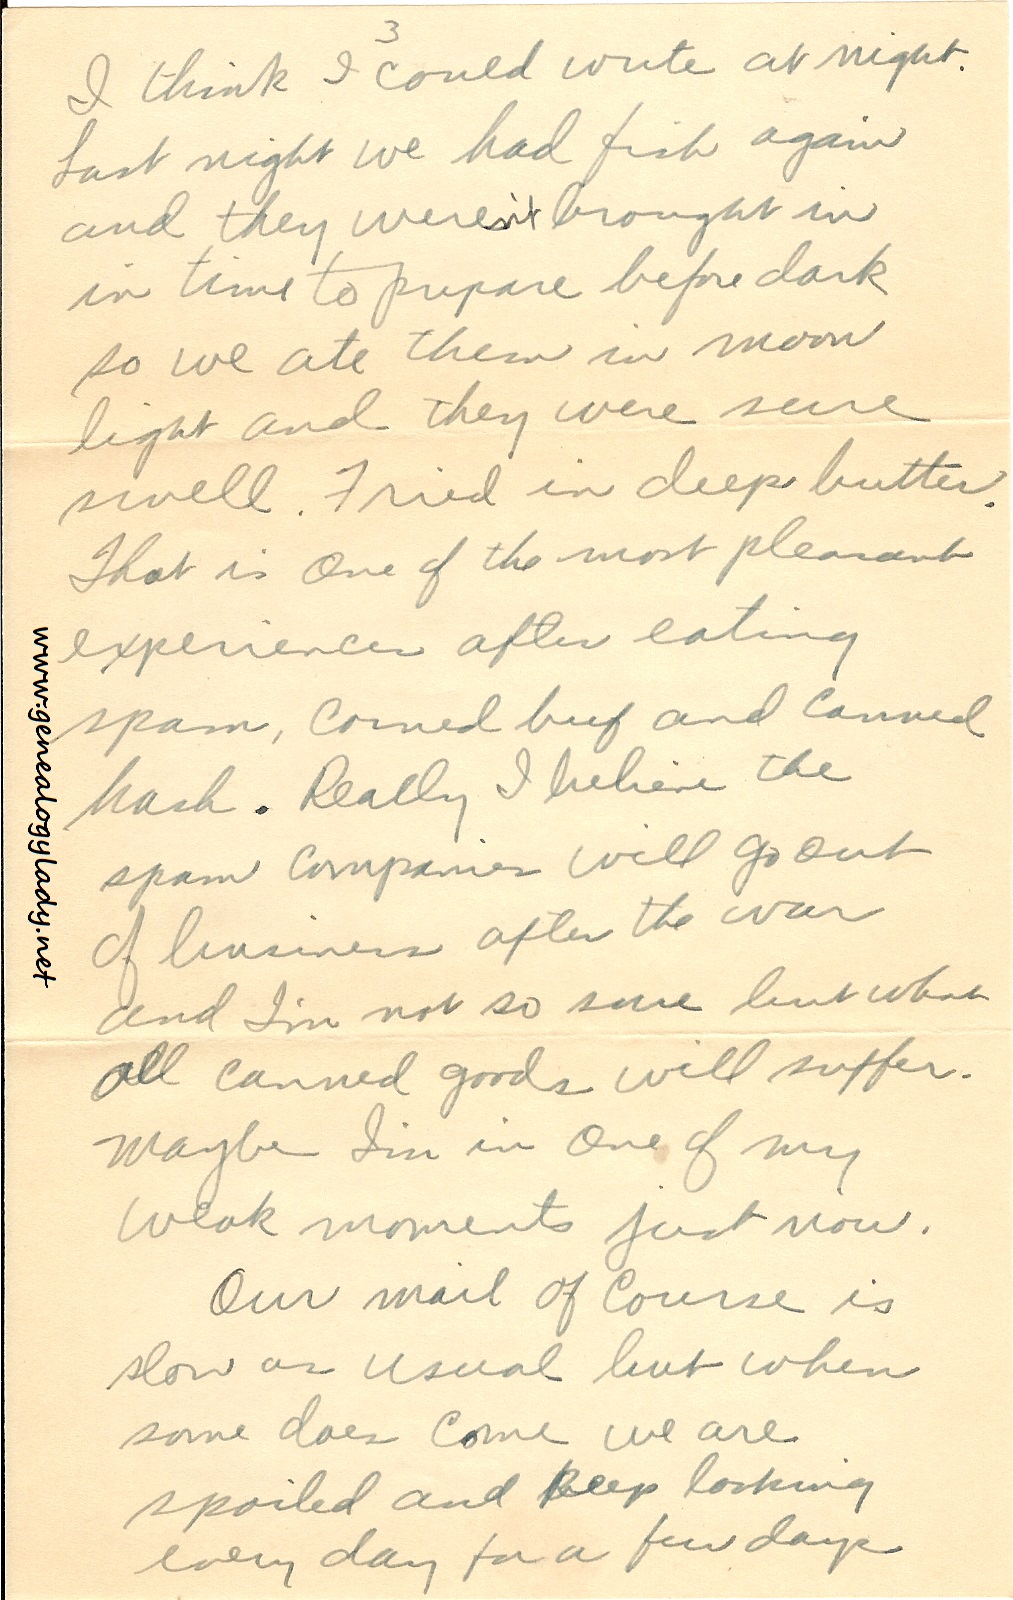 3
I think I could write at night.
Last night we had fish again
and they weren't brought in
in time to prepare before dark
so we ate them in moon
light and they were sure
swell. Fried in deep butter.
That is one of the most pleasant
experiences after eating
spam, corned beef and canned
hash. Really I believe the
spam companies will go out
of business after the war
and I'm not so sure but what
all canned goods will suffer.
Maybe I'm in one of my
weak moments just now.
Our mail of course is
slow as usual but when
some does come we are
spoiled and keep looking
every day for a few days
www.genealogylady.net